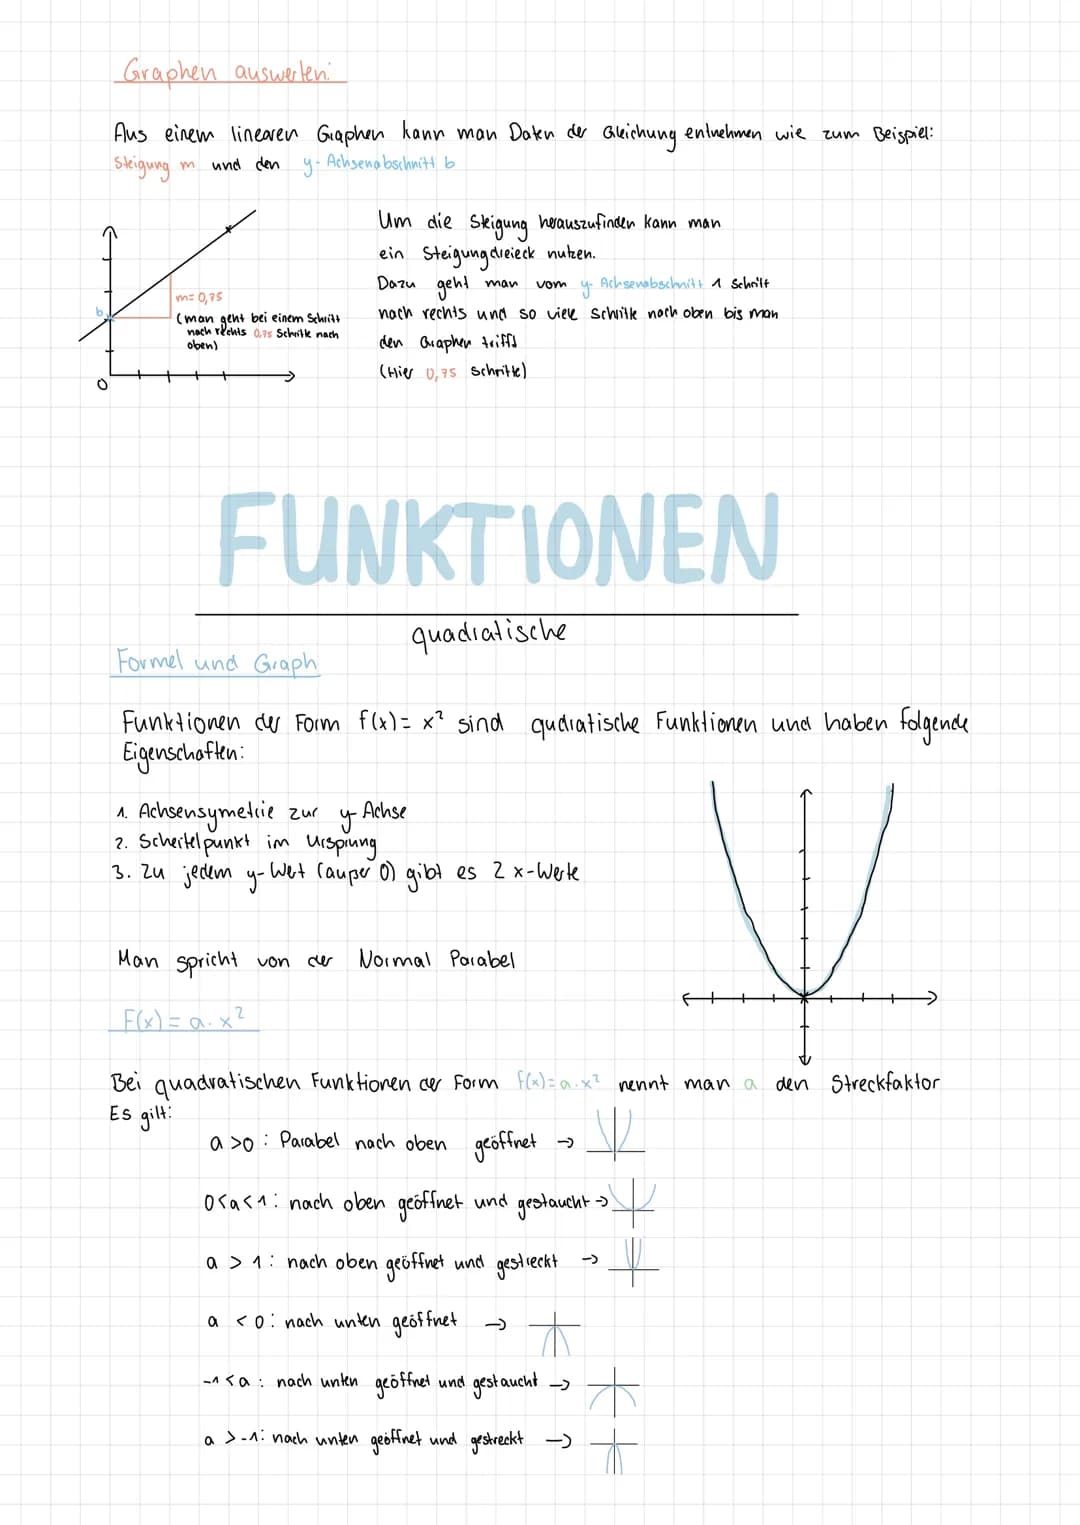 Graphen auswerten:
Aus einem linearen Graphen kann man Daten der Gleichung entnehmen wie zum Beispiel:
Steigung m und den y-Achsenabschnitt b
Um die Steigung herauszufinden kann man
ein Steigungdreieck nutzen.
Dazu geht man vom y-Achsenabschnitt 1 Schritt
nach rechts und so viele Schritte nach oben bis man
den Graphen triffs
(Hier 0,75 Schritte)
b
m=0,75
(man geht bei einem Schritt
nach rechts 0,75 Schritte nach
oben)
0
FUNKTIONEN
quadratische
Formel und Graph
Funktionen der Form f(x)= x² sind qudratische Funktionen und haben folgende
Eigenschaften:
1. Achsensymetrie zur y-Achse
2. Scheitelpunkt im Ursprung
3. Zu jedem y-Wet (außer 0) gibt es 2 x-Werte
Man spricht von der Normal Parabel
F(x)= a·x²
Bei quadratischen Funktionen der Form f(x)=a·x² nennt man a den Streckfaktor
Es gilt:
a >0: Parabel nach oben geöffnet →
0<a<1: nach oben geöffnet und gestaucht →
a > 1: nach oben geöffnet und gestreckt →
a <0: nach unten geöffnet →
-1<a: nach unten geöffnet und gestaucht →
a >-1: nach unten geöffnet und gestreckt →